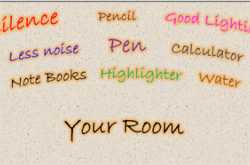 ilence Pencil Good Lighti
Less noise Pen Calculator
Note Books Highlighter Water
Your Room